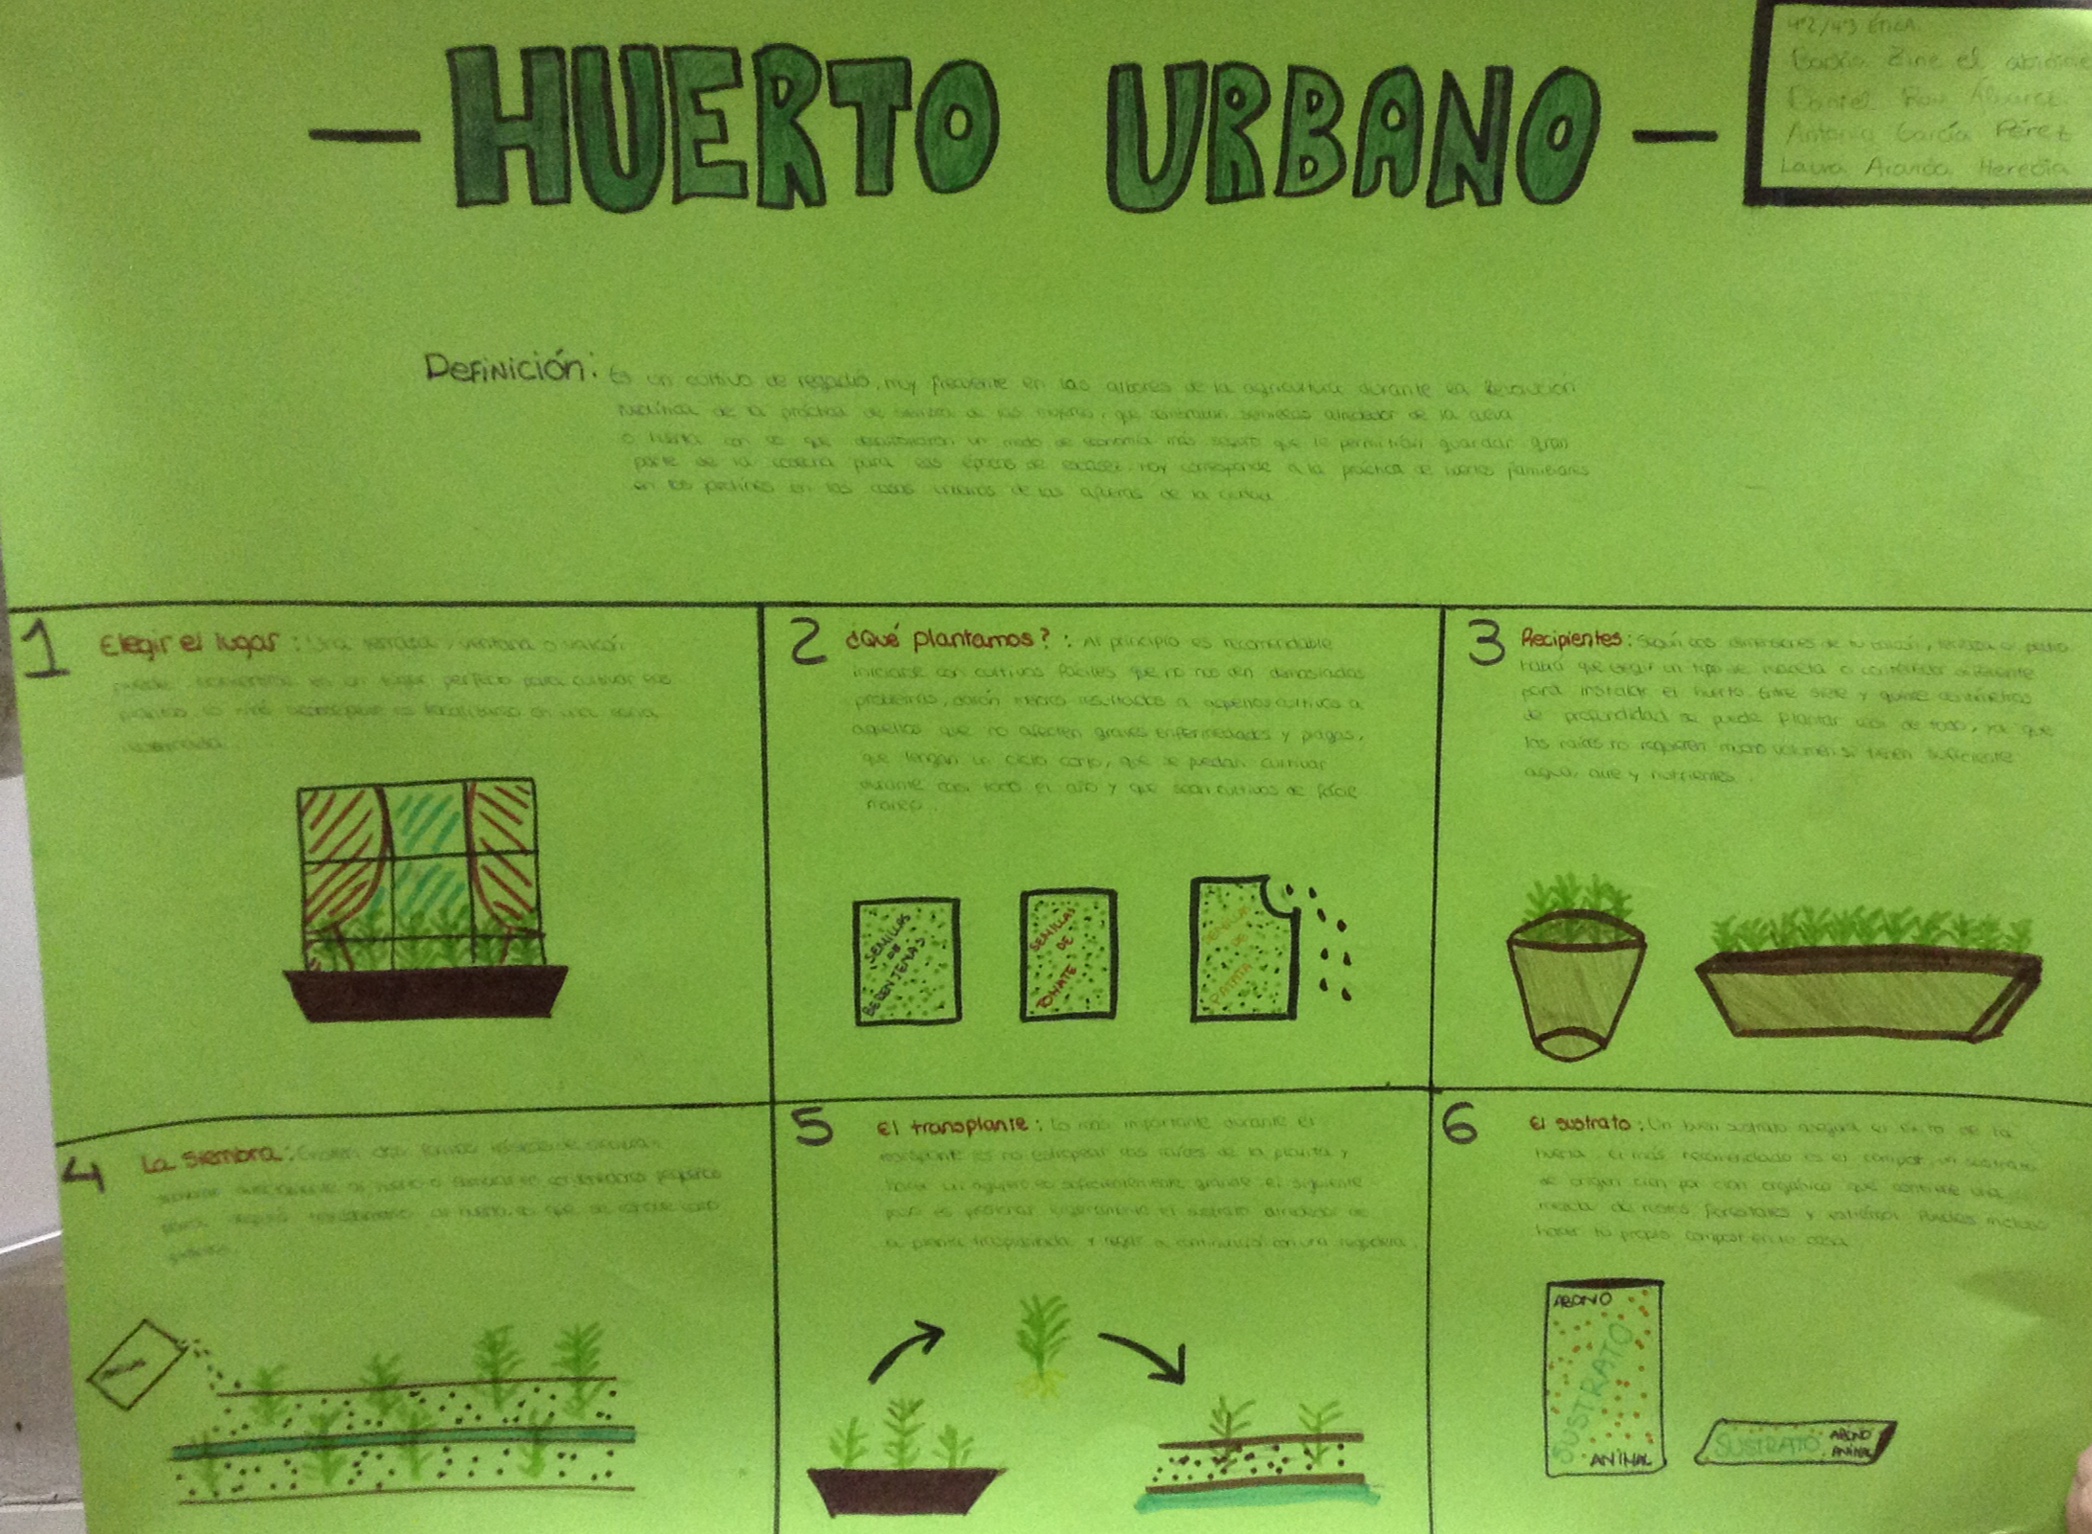 - HUERTO URBANO -
4º2/4º3 ÉTICA.
Zine el
Daniel Álvarez.
Antonio García Pérez
Laura Aranda Heredia
Definición: Es un cultivo de regadío, muy frecuente en los albores de la agricultura durante la Revolución
neolítica de la práctica de siembra de las mujeres, que semillas alrededor de la cueva
o huerta con lo que un modo de economía más seguro que le permitían guardar gran
parte de la cosecha para las épocas de escasez. Hoy corresponde a la práctica de huertos familiares
en los en las casas de las afueras de la ciudad
1 Elegir el lugar: Una terraza, ventana o valcón
puede convertirse en un lugar perfecto para cultivar sus
plantas, lo más es en una zona
2 ¿Qué plantamos?: Al principio es recomendable
iniciarse con cultivos fáciles que no nos den demasiados
problemas, darán mejores resultados a aquellos cultivos a
aquellos que no afecten graves enfermedades y plagas,
que tengan un ciclo corto, que se puedan cultivar
durante casi todo el año y que sean cultivos de fácil
manejo.
SEMILLAS DE BERENJENAS
SEMILLAS DE TOMATE
SEMILLAS DE PATATA
3 Recipientes: Según las dimensiones de tu balcón, terraza o patio
habrá que elegir un tipo de maceta o contenedor diferente
para instalar el huerto. Entre siete y quince centímetros
de profundidad se puede plantar casi de todo, ya que
las raíces no requieren mucho volumen si tienen suficiente
agua, aire y nutrientes.
4 La siembra: Existen dos formas de
sembrar directamente al huerto o sembrar en contenedores pequeños
para después transplantarlo al huerto, lo que se conoce como
5 El transplante: Lo más importante durante el
es no estropear las raíces de la planta y
hacer un agujero lo suficientemente grande, el siguiente
paso es presionar ligeramente el sustrato alrededor de
la planta trasplantada y regar a continuación con una regadera.
6 El sustrato: Un buen sustrato asegura el éxito de la
huerta. El más recomendado es el compost, un sustrato
de origen cien por cien orgánico que contiene una
mezcla de restos forestales y estiércol. Puedes incluso
hacer tu propio compost en tu casa.
ABONO
SUSTRATO
ANIMAL
SUSTRATO ABONO
ANIMAL